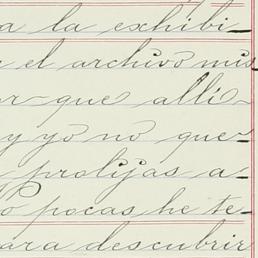 a la exhibi-
el archivo mis
que alli-
y yo no que-
prolijas a-
pocas he te-
para descubrir